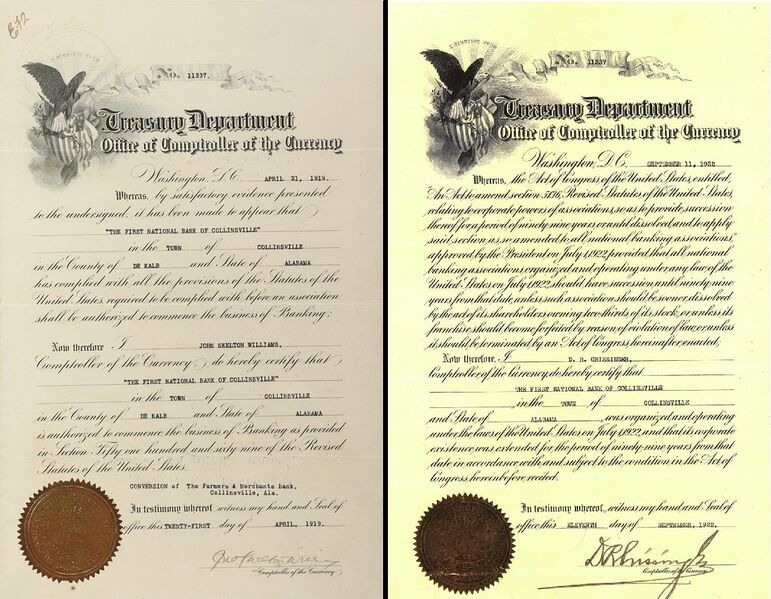 672
E PLURIBUS UNUM
No. 11337.
Treasury Department
Office of Comptroller of the Currency
Washington, D.C. APRIL 21, 1919.
Whereas, by satisfactory evidence presented
to the undersigned, it has been made to appear that
"THE FIRST NATIONAL BANK OF COLLINSVILLE"
in the TOWN of COLLINSVILLE
in the County of DE KALB and State of ALABAMA
has complied with all the provisions of the Statutes of the
United States required to be complied with before an association
shall be authorized to commence the business of Banking;
Now therefore I JOHN SKELTON WILLIAMS,
Comptroller of the Currency do hereby certify that
"THE FIRST NATIONAL BANK OF COLLINSVILLE"
in the TOWN of COLLINSVILLE
in the County of DE KALB and State of ALABAMA
is authorized to commence the business of Banking as provided
in Section Fifty one hundred and sixty nine of the Revised
Statutes of the United States.
CONVERSION of The Farmers & Merchants Bank,
Collinsville, Ala.
In testimony whereof witness my hand and Seal of
office this TWENTY-FIRST day of APRIL, 1919.
Comptroller of the Currency
E PLURIBUS UNUM
No. 11337
Treasury Department
Office of Comptroller of the Currency
Washington, D.C. SEPTEMBER 11, 1922
Whereas, the Act of Congress of the United States, entitled,
"An Act to amend section 5136, Revised Statutes of the United States,
relating to corporate powers of associations, so as to provide succession
thereof for a period of ninety-nine years or until dissolved, and to apply
said section, as so amended, to all national banking associations,"
approved by the President on July 1, 1922, provided that all national
banking associations organized and operating under any law of the
United States on July 1, 1922, should have succession until ninety-nine
years from that date, unless such association should be sooner dissolved
by the act of its shareholders owning two-thirds of its stock, or unless its
franchise should become forfeited by reason of violation of law, or unless
it should be terminated by an Act of Congress hereinafter enacted;
Now therefore, I D. R. CRISSINGER,
Comptroller of the Currency, do hereby certify that
THE FIRST NATIONAL BANK OF COLLINSVILLE
in the TOWN of COLLINSVILLE
and State of ALABAMA was organized and operating
under the laws of the United States on July 1, 1922, and that its corporate
existence was extended for the period of ninety-nine years from that
date in accordance with and subject to the condition in the Act of
Congress hereinbefore recited.
In testimony whereof, witness my hand and Seal of
office this ELEVENTH day of SEPTEMBER, 1922.
D R Crissinger
Comptroller of the Currency